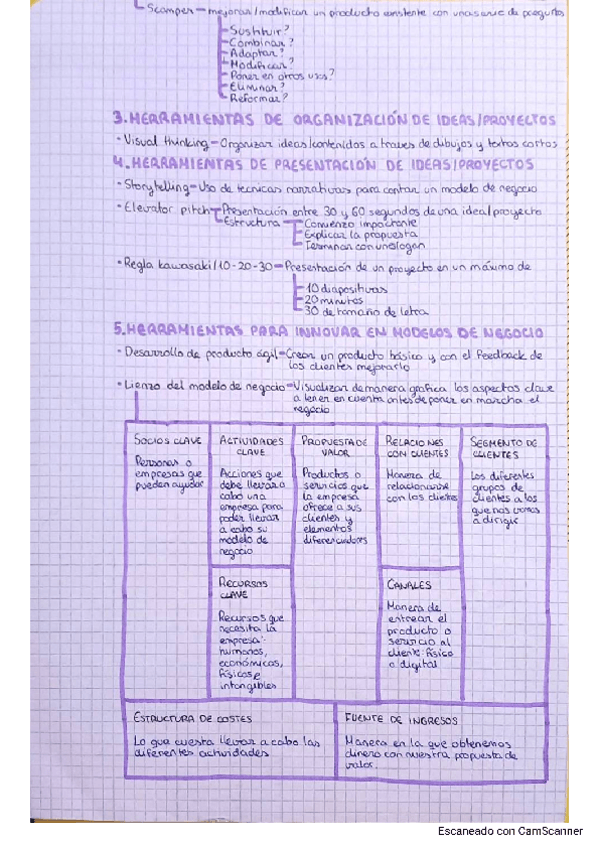 Scamper — mejorar/modificar un producto existente con una serie de preguntas
Sustituir?
Combinar?
Adaptar?
Modificar?
Poner en otros usos?
Eliminar?
Reformar?
3. HERRAMIENTAS DE ORGANIZACIÓN DE IDEAS/PROYECTOS
· Visual thinking — Organizar ideas/contenidos a traves de dibujos y textos cortos
4. HERRAMIENTAS DE PRESENTACIÓN DE IDEAS/PROYECTOS
· Storytelling — Uso de tecnicas narrativas para contar un modelo de negocio
· Elevator pitch — Presentación entre 30 y 60 segundos de una idea/proyecto
Estructura — Comienzo impactante
Explicar la propuesta
Terminar con un slogan
· Regla Kawasaki/10-20-30 — Presentación de un proyecto en un máximo de
10 diapositivas
20 minutos
30 de tamaño de letra
5. HERRAMIENTAS PARA INNOVAR EN MODELOS DE NEGOCIO
· Desarrollo de producto ágil — Crear un producto básico y con el feedback de
los clientes mejorarlo
· Lienzo del modelo de negocio — Visualizar de manera grafica los aspectos clave
a tener en cuenta antes de poner en marcha el
negocio
SOCIOS CLAVE
Personas o
empresas que
puedan ayudar
ACTIVIDADES
CLAVE
Acciones que
debe llevar a
cabo una
empresa para
poder llevar
a cabo su
modelo de
negocio
RECURSOS
CLAVE
Recursos que
necesita la
empresa:
humanos,
económicos,
físicos e
intangibles
PROPUESTA DE
VALOR
Productos o
servicios que
la empresa
ofrece a sus
clientes y
elementos
diferenciadores
RELACIONES
CON CLIENTES
Manera de
relacionarse
con los clientes
CANALES
Manera de
entregar el
producto o
servicio al
cliente: físico
o digital
SEGMENTO DE
CLIENTES
Los diferentes
grupos de
clientes a los
que nos vamos
a dirigir
ESTRUCTURA DE COSTES
Lo que cuesta llevar a cabo las
diferentes actividades
FUENTE DE INGRESOS
Manera en la que obtenemos
dinero con nuestra propuesta de
valor.
Escaneado con CamScanner